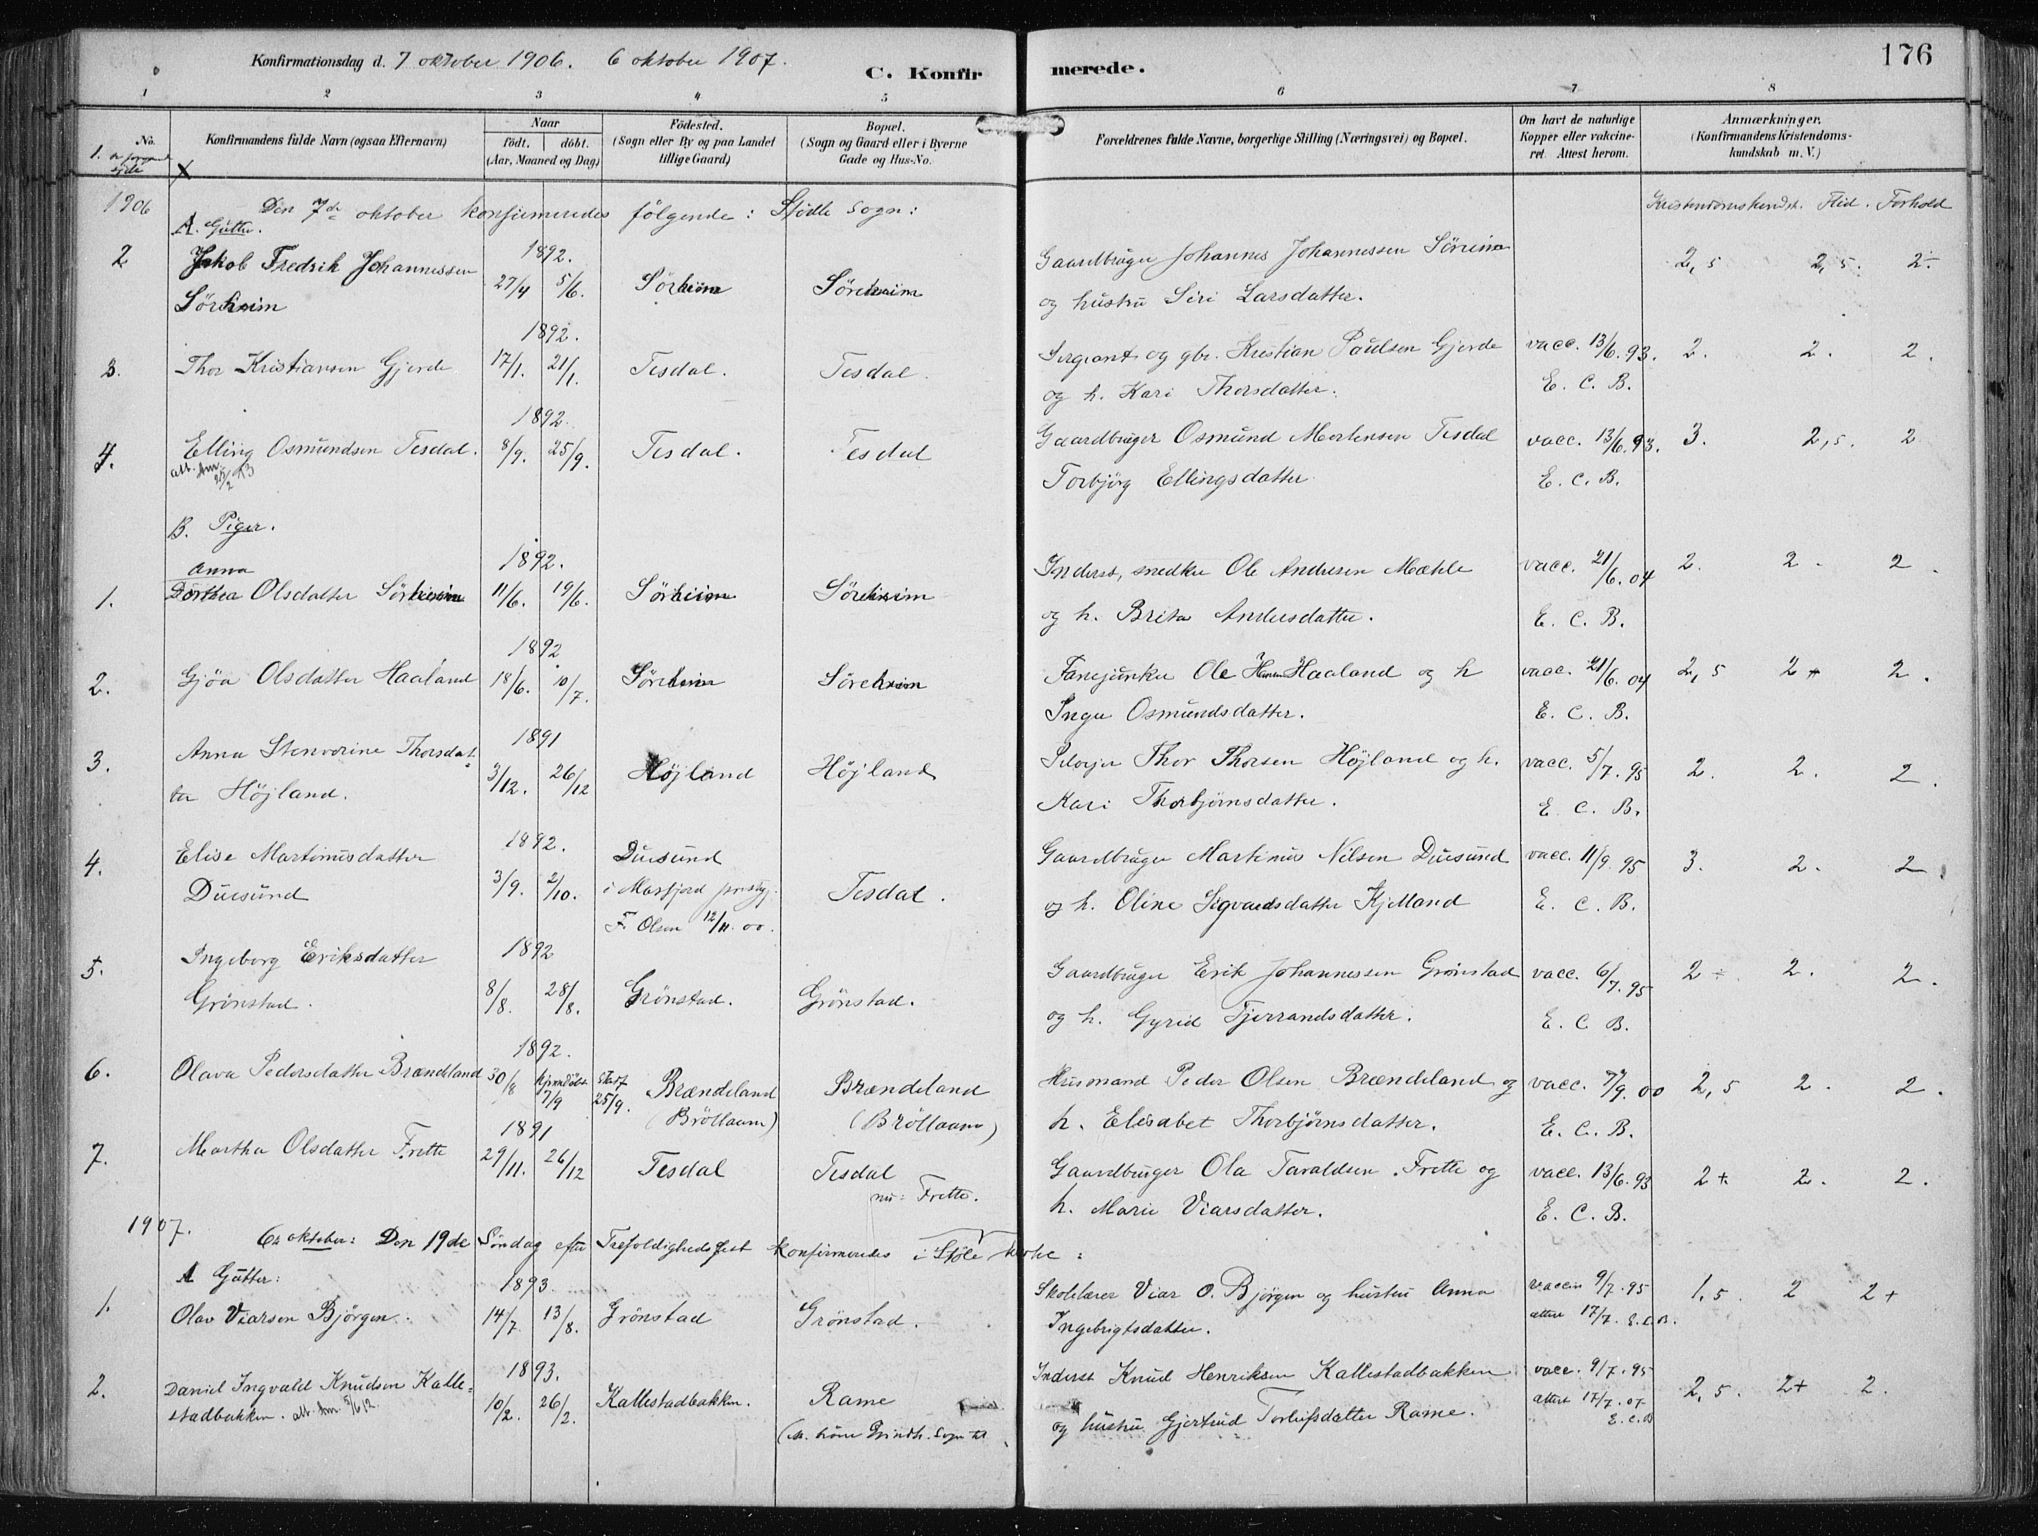 Konfirmationsdag d. 7 oktober 1906. 6 oktober 1907.
C. Konfirmerede.
176
1 2 3 4 5 6 7 8
No.
Konfirmandens fulde Navn (ogsaa Efternavn)
Naar
født. døbt.
(Aar, Maaned og Dag)
Fødested.
(Sogn eller By og paa Landet
tillige Gaard)
Bopæl.
(Sogn og Gaard eller i Byerne
Gade og Hus-No.
Forældrenes fulde Navne, borgerlige Stilling (Næringsvei) og Bopæl.
Om havt de naturlige
Kopper eller vakcine-
ret. Attest herom.
Anmærkninger.
(Konfirmandens Kristendoms-
kundskab m. V.)
1906 Den 7de oktober konfirmeredes følgende: Stødle sogn:
Kristendomskundsk. Flid. Forhold
A. Gutter.
2 Jakob Fredrik Johannessen 1892.
Sørheim 27/4 5/6. Sørheim Søreheim
Gaardbruger Johannes Johannessen Søreim 2,5 2,5. 2÷
og hustru Siri Larsdatter.
1892.
3. Thor Kristiansen Gjerde 17/1. 21/1. Tesdal. Tesdal.
Sergeant og gbr. Kristian Poulsen Gjerde vacc. 13/6.93. 2. 2. 2.
og h. Kari Thorsdatter. E. C. B.
1892.
4. Elling Osmundsen Tesdal. 8/9. 25/9. Tesdal. Tesdal
Gaardbruger Osmund Mortensen Tesdal vacc. 13/6.93. 3. 2,5. 2
Torbjörg Ellingsdatter E. C. B.
B. Piger.
Anna 1892.
1. Dorthea Olsdatter Sørheim 11/6. 19/6. Sørheim Søreheim
Inderst, snedker Ole Andersen Mæhle vacc. 21/6.04 2. 2. 2.
og h. Brita Andersdatter. E. C. B.
1892
2. Gjøa Olsdatter Haaland 18/6. 10/7. Søreheim Søreheim
Fanejunker Ole Haaland og h vacc. 21/6.04 2,5 2+ 2.
Inger Osmundsdatter. E. C. B.
1891
3. Anna Stenvorine Thorsdat-
ter Højland. 3/12. 26/12 Højland Højland
Thor Thorsen Højland og h. vacc. 5/7.95 2. 2. 2.
Kari Thorbjørnsdatter. E. C. B.
1892.
4. Elise Martinusdatter
Duesund 3/9. 2/10. Duesund
i Masfjord prestgj. Tesdal.
F. Olsen 12/11.00.
Gaardbruger Martinus Nilsen Duesund vacc. 11/9.95 3. 2. 2.
og h. Oline Sigvardsdatter Kjelland E. C. B.
1892
5. Ingeborg Eriksdatter
Grønstad. 8/8. 28/8. Grønstad. Grønstad.
Gaardbruger Erik Johannessen Grønstad vacc. 6/7.95 2÷ 2. 2.
og h. Gyrid Tjerrandsdatter. E. C. B.
1892.
6. Olava Pedersdatter Brændeland 30/8 hjemdøbt 7/9 stadf 25/9. Brændeland Brændeland
(Bröllaum) (Bröllaum)
Husmand Peder Olsen Brændeland og vacc. 7/9.00 2,5 2. 2.
h. Elisabet Thorbjørnsdatter. E. C. B.
1891
7. Martha Olsdatter Frette 29/11. 26/12 Tesdal Tesdal
nu: Frette.
Gaardbruger Ola Taraldsen Frette og vacc. 13/6.93 2+ 2. 2.
h. Marie Viarsdatter. E. C. B.
1907. 6te oktober: Den 19de Søndag efter Trefoldighedsfest konfirmeredes i Støle kirke:
A Gutter: 1893.
1. Olav Viarsen Bjørgen. 14/7 13/8. Grønstad Grønstad.
Skolelærer Viar O. Bjørgen og hustru Anna vaccin 9/7.95 1,5. 2 2+
Ingebrigtsdatter. attest 17/7. E. C. B.
1893.
2. Daniel Ingvald Knudsen Kalle-
stadbakken. att. Am. 5/6 12. 10/2. 26/2. Kallestadbakken. Rame
Inderst Knud Henriksen Kallestadbakken vacc. 9/7.95 2,5. 2+ 2.
og hustru Gjertrud Torleifsdatter Rame. attest 17/7.07 E. C. B